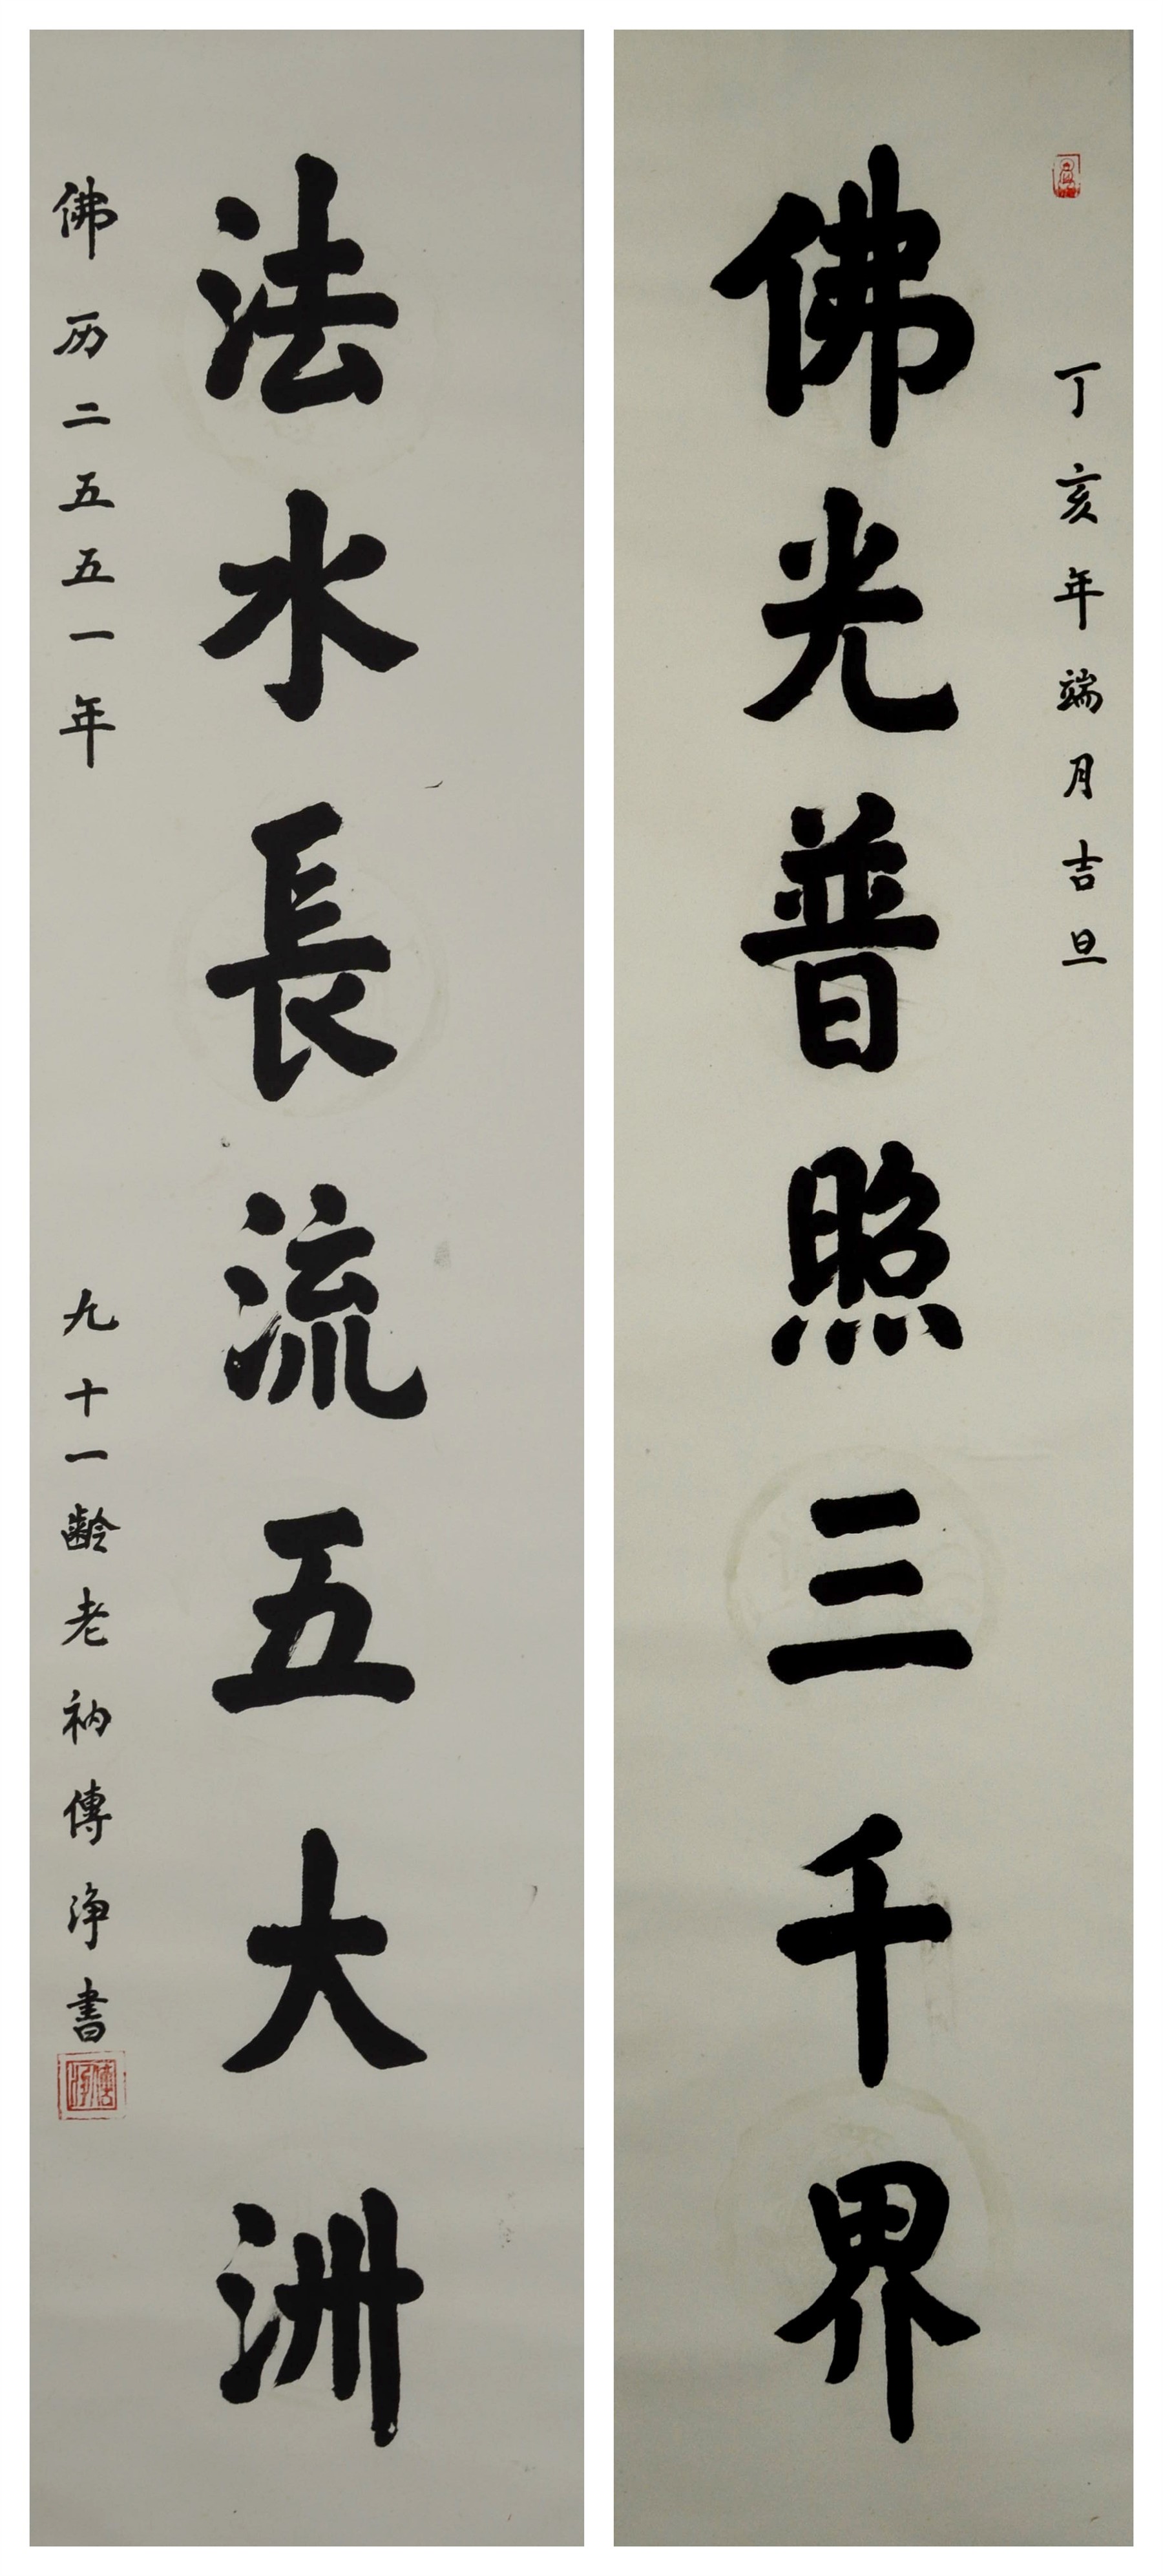 丁亥年端月吉旦
佛光普照三千界
法水長流五大洲
佛历二五五一年
九十一齡老衲傳浄書
傳淨